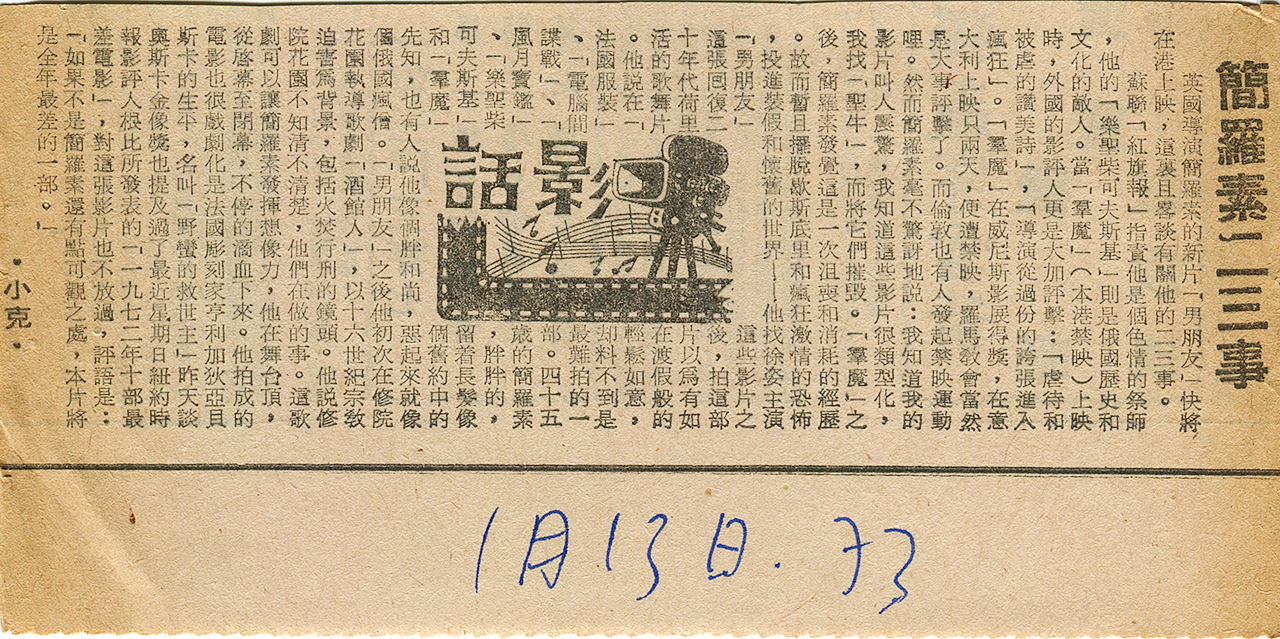 簡羅素二三事
英國導演簡羅素的新片「男朋友」快將
在港上映，這裏且畧談有關他的二三事。
蘇聯「紅旗報」指責他是個色情的祭師
，他的「樂聖柴可夫斯基」則是俄國歷史和
文化的敵人。當「羣魔」（本港禁映）上映
時，外國的影評人更是大加評擊：「虐待和
被虐的讚美詩」，「導演從過份的誇張進入
瘋狂」。「羣魔」在威尼斯影展得獎，在意
大利上映只兩天，便遭禁映，羅馬教會當然
是大事評擊了。而倫敦也有人發起禁映運動
哩。然而簡羅素毫不驚訝地説：我知道我的
影片叫人震驚，我知道這些影片很類型化，
我找「聖牛」，而將它們摧毀。「羣魔」之
後，簡羅素發覺這是一次沮喪和消耗的經歷
。故而暫且擺脫歇斯底里和瘋狂激情的恐怖
，投進裝假和懷舊的世界——他找徐姿主演
「男朋友」
這張回復二
十年代荷里
活的歌舞片
。他說在「
法國服裝」
、「電腦間
諜戰」、「
風月寶鑑」
、「樂聖柴
可夫斯基」
和「羣魔」
影話
這些影片之
後，拍這部
片以為有如
在渡假般的
輕鬆如意，
却料不到是
最難拍的一
部。四十五
歲的簡羅素
，胖胖的，
留着長髮像
個舊約中的
先知，也有人説他像個胖和尚，惡起來就像
個俄國瘋僧。「男朋友」之後他初次在修院
花園執導歌劇「酒館人」，以十六世紀宗教
迫害為背景，包括火焚行刑的鏡頭。他說修
院花園不知清不清楚，他們在做的事。這歌
劇可以讓簡羅素發揮想像力，他在舞台頂，
從啓幕至閉幕，不停的滴血下來。他拍成的
電影也很戲劇化是法國彫刻家亨利加狄亞貝
斯卡的生平，名叫「野蠻的救世主」昨天談
奧斯卡金像獎也提及過了最近星期日紐約時
報影評人根比所發表的「一九七二年十部最
差電影」，對這張影片也不放過，評語是：
「如果不是簡羅素還有點可觀之處，本片將
是全年最差的一部。」
·小克·
1月13日.73